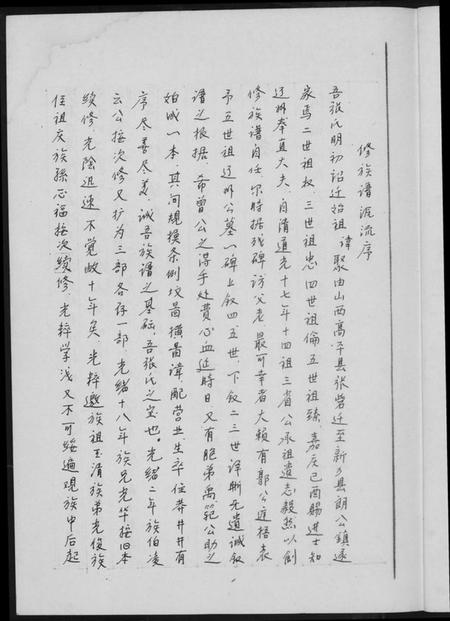 修族谱源流序
吾张氏明初诏迁始祖 讳聚由山西高平县张营迁至新乡县朗公镇遂
家焉二世祖权 三世祖忠 四世祖倫 五世祖臻 嘉庆己酉赐进士知
辽州奉直大夫 自清道光十七年十四祖三省公承祖遗志毅然以创
修族谱自任 尔時据残碑 访父老 最可幸者大赖有郭公廷梧表
予五世祖辽州公墓一碑 上叙四五世 下叙二三世 详晰无遗 诚叙
谱之根据 而曾公之得手处 费心血延時日 又有胞弟禹范公助之
始成一本 其间规模条例 坟昌横昌 讳配营业 生卒任葬 井井有
序 尽善尽美 诚吾族谱之基础 吾张氏之宝也。光绪二年族伯凌
云公接次修 又扩为三部 各存一部 光绪十八年族兄光华接旧本
续修 光陰迅速 不覚敝十年矣 光粹邀族祖玉清族弟光俊族
侄祖庆族孫心福接次續修 光粹学浅又不可 遍观族中后起